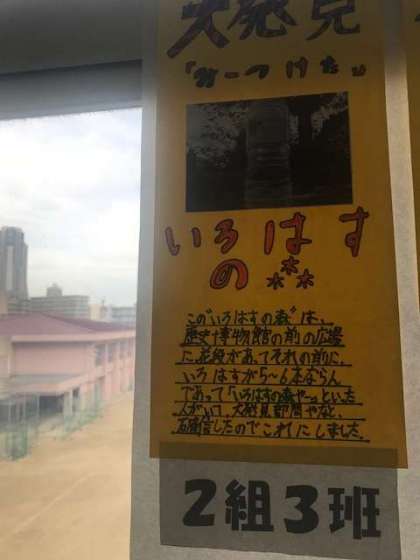 大発見
「みーつけた」
いろはす
の森
この"いろはすの森"は、
歴史博物館の前の広場
に花段があってそれの前に、
いろはすが5〜6本ならん
であって「いろはすの森やー」といった
人がいて、大発見部門やなと、
確信したのでこれにしました。
2組3班